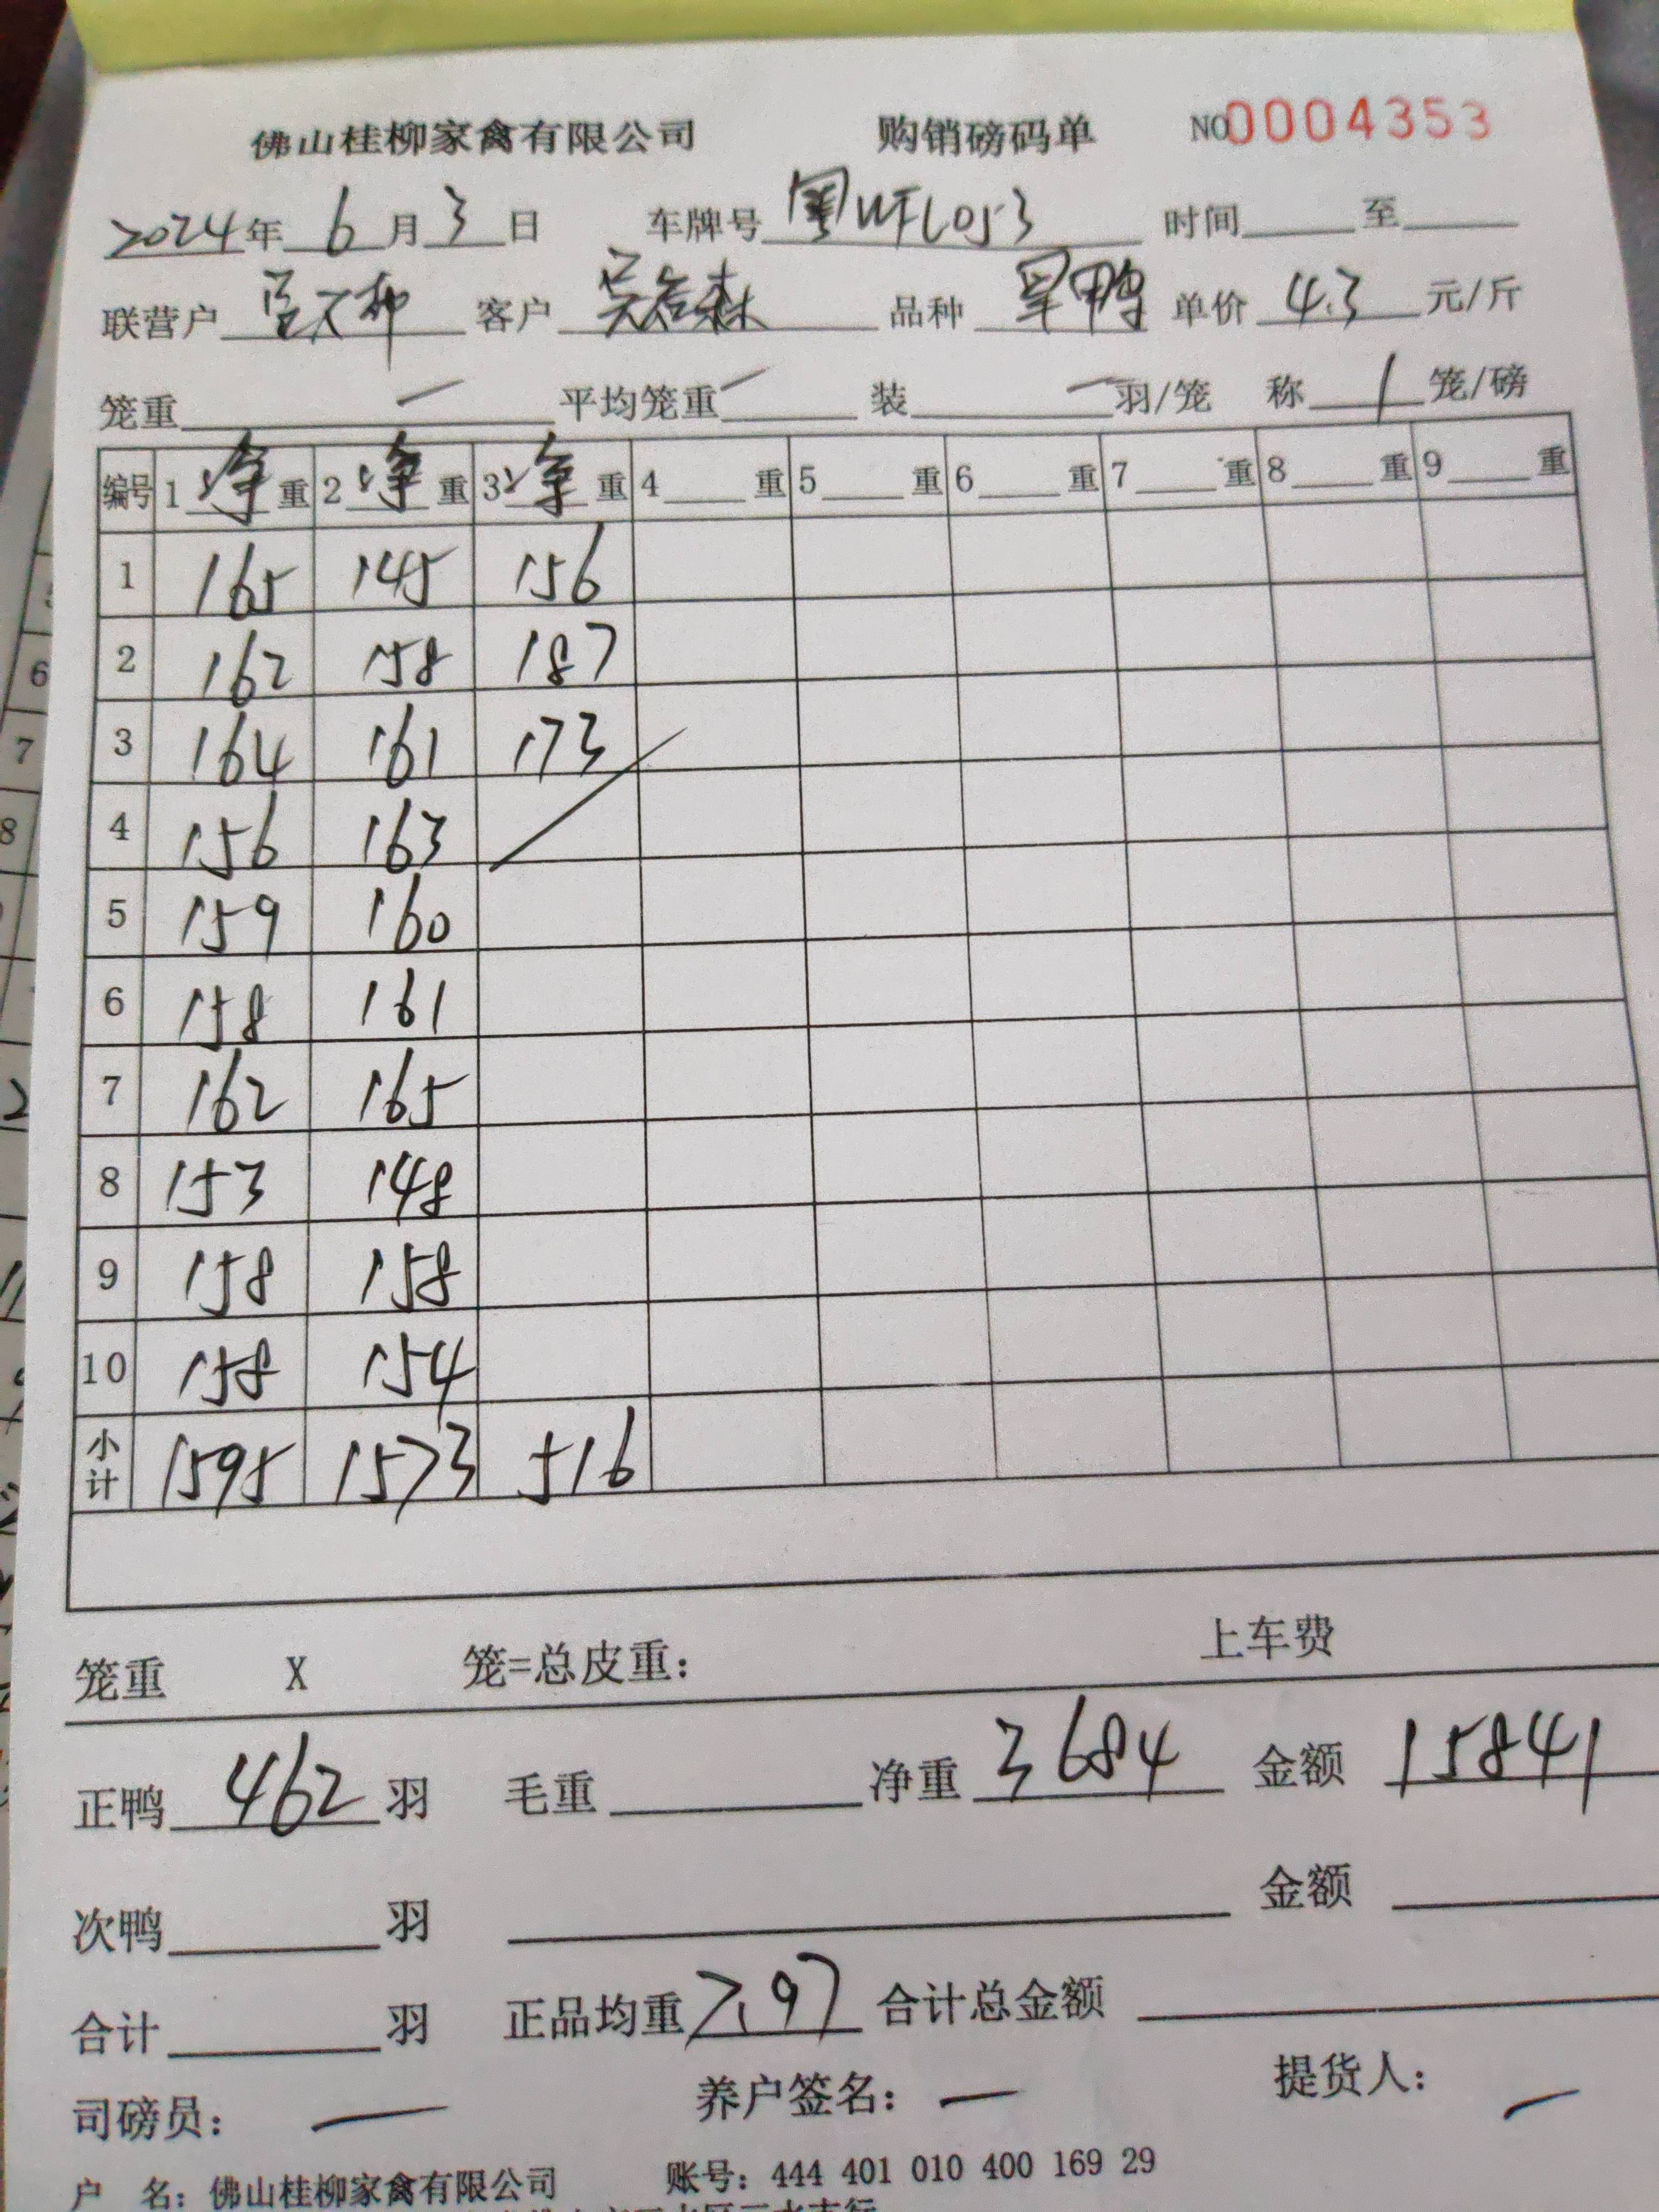 佛山桂柳家禽有限公司 购销磅码单 NO0004353
2024年 6 月 3 日 车牌号 粤 L053 时间 至
联营户 客户 吴 森 品种 鸭 单价 4.3 元/斤
笼重 一 平均笼重 一 装 一 羽/笼 称 1 笼/磅
编号 1 净 重 2 净 重 3 净 重 4 重 5 重 6 重 7 重 8 重 9 重
1 165 145 156
2 162 158 187
3 164 161 173
4 156 163
5 159 160
6 158 161
7 162 165
8 153 148
9 158 158
10 158 154
小计 1595 1573 516
笼重 X 笼=总皮重: 上车费
正鸭 462 羽 毛重 净重 3684 金额 15841
次鸭 羽 金额
合计 羽 正品均重 7.97 合计总金额
司磅员: 一 养户签名: 一 提货人: 一
户 名: 佛山桂柳家禽有限公司 账号: 444 401 010 400 169 29